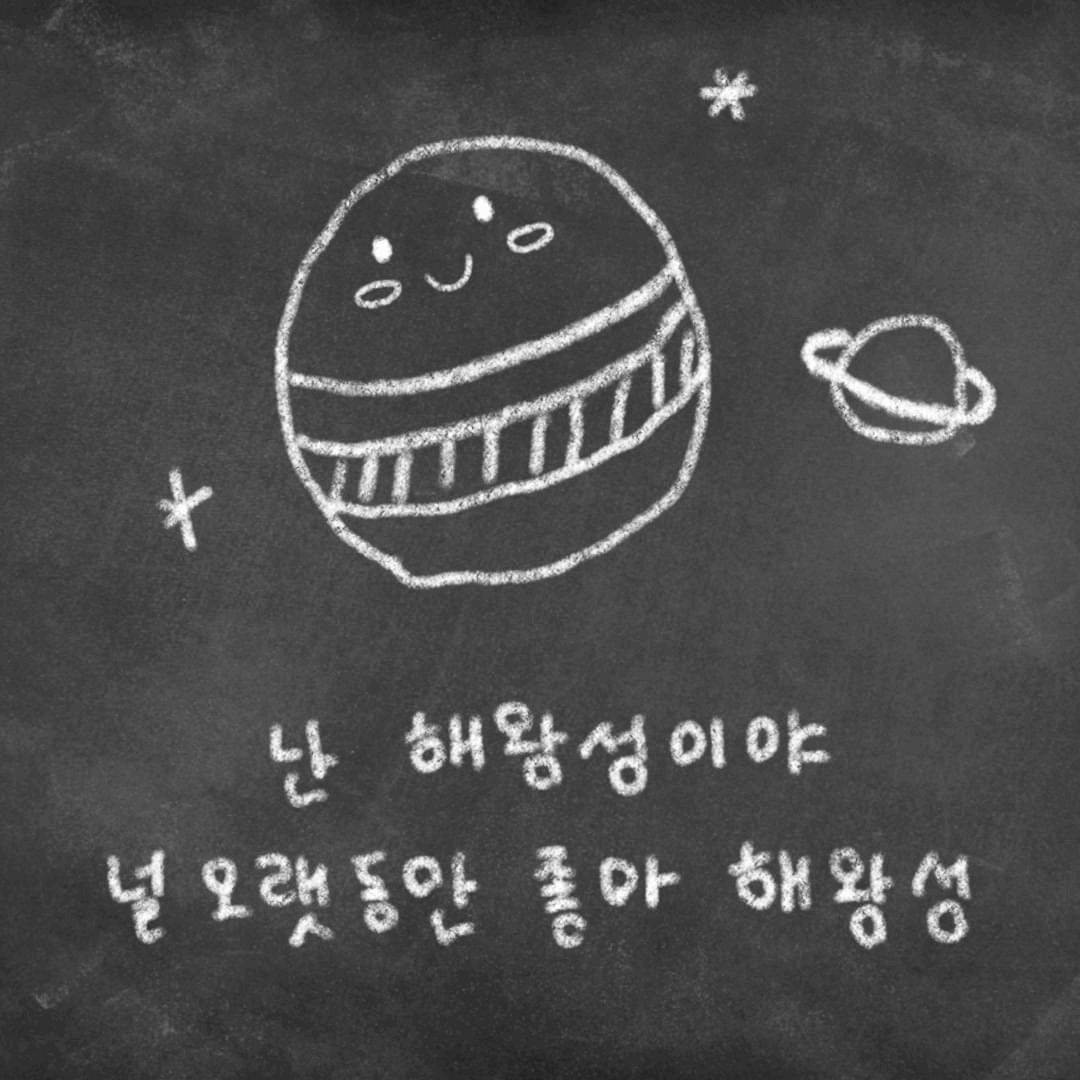 난 해왕성이야
널 오랫동안 좋아 해왕성